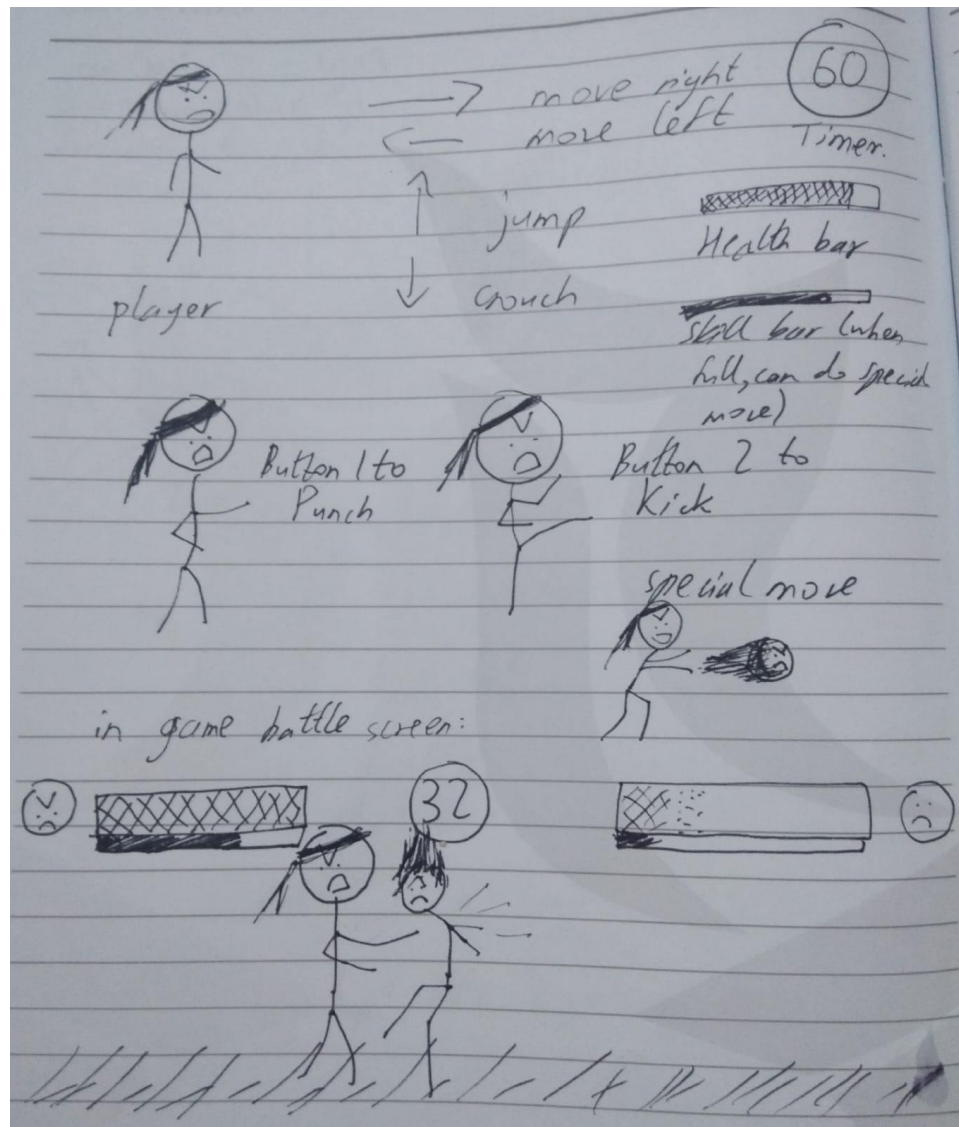 60
move right
move left
Timer.
jump
Health bar
player
crouch
skill bar (when
full, can do special
move)
Button 1 to
Punch
Button 2 to
Kick
special move
in game battle screen:
32